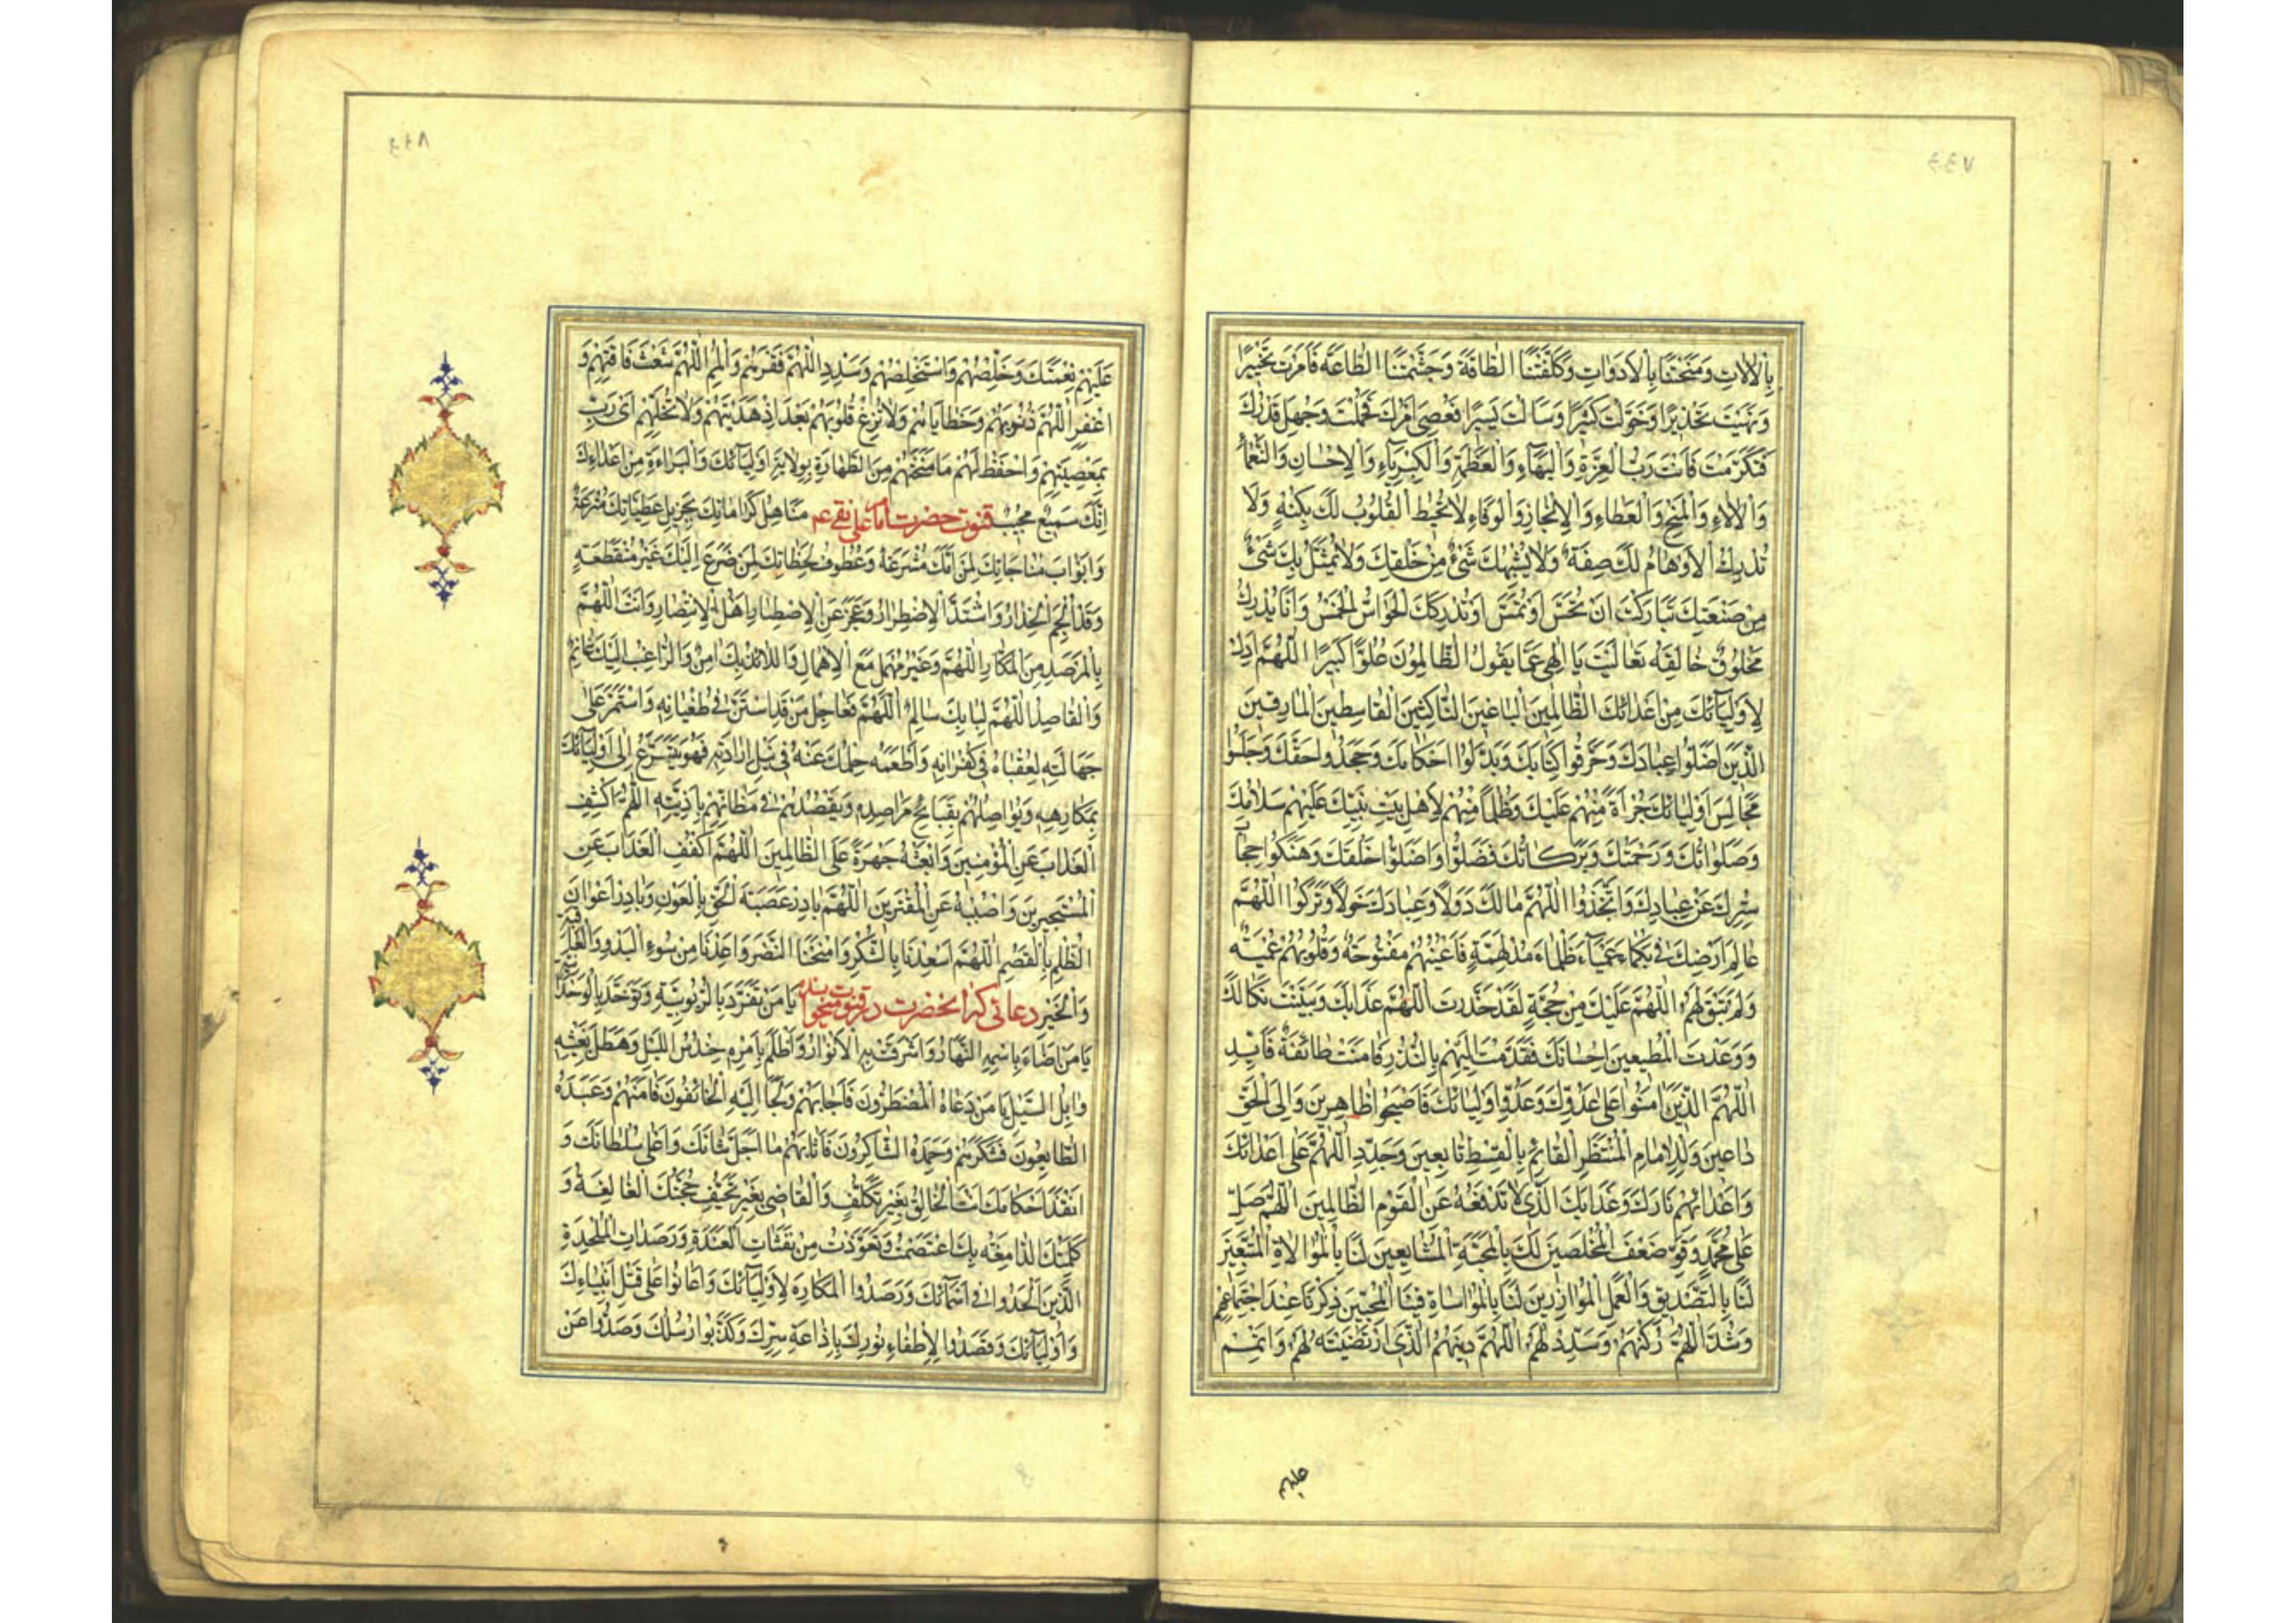 بِالْاٰلَاتِ وَمَنَحْتَنَا بِالْاَدَوَاتِ وَكَلَّفْتَنَا الطَّاقَةَ وَجَشَّمْتَنَا الطَّاعَةَ فَاَمَرْتَ تَخْيِيرًا
وَنَهَيْتَ تَحْذِيرًا وَخَوَّلْتَ كَثِيرًا وَسَاَلْتَ يَسِيرًا فَعُصِيَ اَمْرُكَ فَحَلُمْتَ وَجُهِلَ قَدْرُكَ
فَتَكَرَّمْتَ فَاَنْتَ رَبُّ الْعِزَّةِ وَالْبَهَاءِ وَالْعَظَمَةِ وَالْكِبْرِيَاءِ وَالْاِحْسَانِ وَالنَّعْمَاءِ
وَالْاٰلَاءِ وَالْمِنَحِ وَالْعَطَاءِ وَالْاِنْجَازِ وَالْوَفَاءِ لَا تُحِيطُ الْقُلُوبُ لَكَ بِكُنْهٍ وَلَا
تُدْرِكُ الْاَوْهَامُ لَكَ صِفَةً وَلَا يُشْبِهُكَ شَيْءٌ مِنْ خَلْقِكَ وَلَا يُمَثَّلُ بِكَ شَيْءٌ
مِنْ صَنْعَتِكَ تَبَارَكْتَ اَنْ تُحَسَّ اَوْ تُمَسَّ اَوْ تُدْرِكَكَ الْحَوَاسُّ الْخَمْسُ وَاَنّٰى يُدْرِكُ
مَخْلُوقٌ خَالِقَهُ تَعَالَيْتَ يَا اِلٰهِي عَمَّا يَقُولُ الظَّالِمُونَ عُلُوًّا كَبِيرًا اللّٰهُمَّ اَدِلْ
لِاَوْلِيَائِكَ مِنْ اَعْدَائِكَ الظَّالِمِينَ الْبَاغِينَ النَّاكِثِينَ الْقَاسِطِينَ الْمَارِقِينَ
الَّذِينَ اَضَلُّوا عِبَادَكَ وَحَرَّفُوا كِتَابَكَ وَبَدَّلُوا اَحْكَامَكَ وَجَحَدُوا حَقَّكَ وَجَلَسُوا
مَجَالِسَ اَوْلِيَائِكَ جُرْاَةً مِنْهُمْ عَلَيْكَ وَظُلْمًا مِنْهُمْ لِاَهْلِ بَيْتِ نَبِيِّكَ عَلَيْهِمْ سَلَامُكَ
وَصَلَوَاتُكَ وَرَحْمَتُكَ وَبَرَكَاتُكَ فَضَلُّوا وَاَضَلُّوا خَلْقَكَ وَهَتَكُوا حِجَابَ
سِتْرِكَ عَنْ عِبَادِكَ وَاتَّخَذُوا اللّٰهُمَّ مَالَكَ دُوَلًا وَعِبَادَكَ خَوَلًا وَتَرَكُوا اللّٰهُمَّ
عَالَمَ اَرْضِكَ فِي بَكْمَاءَ عَمْيَاءَ ظَلْمَاءَ مُدْلَهِمَّةٍ فَاَعْيُنُهُمْ مَفْتُوحَةٌ وَقُلُوبُهُمْ عَمِيَّةٌ
وَلَمْ تَبْقَ لَهُمُ اللّٰهُمَّ عَلَيْكَ مِنْ حُجَّةٍ لَقَدْ حَذَّرْتَ اللّٰهُمَّ عَذَابَكَ وَبَيَّنْتَ نَكَالَكَ
وَوَعَدْتَ الْمُطِيعِينَ اِحْسَانَكَ فَقَدَّمْتَ اِلَيْهِمْ بِالنُّذُرِ فَاٰمَنَتْ طَائِفَةٌ فَاَيِّدِ
اللّٰهُمَّ الَّذِينَ اٰمَنُوا عَلٰى عَدُوِّكَ وَعَدُوِّ اَوْلِيَائِكَ فَاَصْبَحُوا ظَاهِرِينَ وَاِلَى الْحَقِّ
دَاعِينَ وَلِلْاِمَامِ الْمُنْتَظَرِ الْقَائِمِ بِالْقِسْطِ تَابِعِينَ وَجَدِّدِ اللّٰهُمَّ عَلٰى اَعْدَائِكَ
وَاَعْدَائِهِمْ نَارَكَ وَعَذَابَكَ الَّذِي لَا تَدْفَعُهُ عَنِ الْقَوْمِ الظَّالِمِينَ اللّٰهُمَّ صَلِّ
عَلٰى مُحَمَّدٍ وَقَوِّ ضَعْفَ الْمُخْلَصِينَ لَكَ بِالْمَحَبَّةِ الْمُشَايِعِينَ لَنَا بِالْمُوَالَاةِ الْمُتَّبِعِينَ
لَنَا بِالتَّصْدِيقِ وَالْعَمَلِ الْمُوَازِرِينَ لَنَا بِالْمُوَاسَاةِ فِينَا الْمُحِبِّينَ ذِكْرَنَا عِنْدَ اجْتِمَاعِهِمْ
وَشُدَّ اللّٰهُمَّ رُكْنَهُمْ وَسَدِّدْ لَهُمُ اللّٰهُمَّ دِينَهُمُ الَّذِي ارْتَضَيْتَهُ لَهُمْ وَاَتْمِمْ
عليهم
عَلَيْهِمْ نِعْمَتَكَ وَخَلِّصْهُمْ وَاسْتَخْلِصْهُمْ وَسَدِّدِ اللّٰهُمَّ فَقْرَهُمْ وَالْمُمِ اللّٰهُمَّ شَعَثَ فَاقَتِهِمْ وَ
اغْفِرِ اللّٰهُمَّ ذُنُوبَهُمْ وَخَطَايَاهُمْ وَلَا تُزِغْ قُلُوبَهُمْ بَعْدَ اِذْ هَدَيْتَهُمْ وَلَا تُخَلِّهِمْ اَيْ رَبِّ
بِمَعْصِيَتِهِمْ وَاحْفَظْ لَهُمْ مَا مَنَحْتَهُمْ مِنَ الطَّهَارَةِ بِوِلَايَةِ اَوْلِيَائِكَ وَالْبَرَاءَةِ مِنْ اَعْدَائِكَ
اِنَّكَ سَمِيعٌ مُجِيبٌ قنوت حضرت امام علي نقي عم مَنَاهِلُ كَرَامَاتِكَ بِجَزِيلِ عَطِيَّاتِكَ مُتْرَعَةٌ
وَاَبْوَابُ مُنَاجَاتِكَ لِمَنْ اَمَّكَ مُشْرَعَةٌ وَعُطُوفُ لَحَظَاتِكَ لِمَنْ ضَرَعَ اِلَيْكَ غَيْرُ مُنْقَطِعَةٍ
وَقَدْ اُلْجِمَ الْحِذَارُ وَاشْتَدَّ الْاِضْطِرَارُ وَعَجَزَ عَنِ الْاِصْطِبَارِ اَهْلُ الْاِنْتِصَارِ وَاَنْتَ اللّٰهُمَّ
بِالْمَرْصَدِ مِنَ الْمَكَّارِ اللّٰهُمَّ وَغَيْرُ مُهْمِلٍ مَعَ الْاِمْهَالِ وَاللَّائِذُ بِكَ اٰمِنٌ وَالرَّاغِبُ اِلَيْكَ غَانِمٌ
وَالْقَاصِدُ اللّٰهُمَّ لِبَابِكَ سَالِمٌ اَللّٰهُمَّ فَعَاجِلْ مَنْ قَدِ اسْتَنَّ فِي طُغْيَانِهِ وَاسْتَمَرَّ عَلٰى
جَهَالَتِهِ لِعُقْبَاهُ فِي كُفْرَانِهِ وَاَطْمَعَهُ حِلْمُكَ عَنْهُ فِي نَيْلِ اِرَادَتِهِ فَهُوَ يَتَسَرَّعُ اِلٰى اَوْلِيَائِكَ
بِمَكَارِهِهِ وَيُوَاصِلُهُمْ بِقَبَائِحِ مَرَاصِدِهِ وَيَقْصُدُهُمْ فِي مَظَانِّهِمْ بِاَذِيَّتِهِ اللّٰهُمَّ اكْشِفِ
الْعَذَابَ عَنِ الْمُؤْمِنِينَ وَابْعَثْهُ جَهْرَةً عَلَى الظَّالِمِينَ اَللّٰهُمَّ اكْفُفِ الْعَذَابَ عَنِ
الْمُسْتَجِيرِينَ وَاصْبُبْهُ عَنِ الْمُفْتَرِينَ اللّٰهُمَّ بَادِرْ عُصْبَةَ الْحَقِّ بِالْعَوْنِ وَبَادِرْ اَعْوَانَ
الظُّلْمِ بِالْقَصْمِ اللّٰهُمَّ اَسْعِدْنَا بِالشُّكْرِ وَامْنَحْنَا النَّصْرَ وَاَعِذْنَا مِنْ سُوءِ الْبَدْوِ وَالْعَاقِبَةِ
وَالْخَيْرِ دعائی که آنحضرت در قنوت میخوانده يَا مَنْ تَفَرَّدَ بِالرُّبُوبِيَّةِ وَتَوَحَّدَ بِالْوَحْدَانِيَّةِ
يَا مَنْ اَضَاءَ بِاسْمِهِ النَّهَارُ وَاَشْرَقَتْ بِهِ الْاَنْوَارُ وَاَظْلَمَ بِاَمْرِهِ حِنْدِسُ اللَّيْلِ وَهَطَلَ بِغَيْثِهِ
وَابِلُ السَّيْلِ يَا مَنْ دَعَاهُ الْمُضْطَرُّونَ فَاَجَابَهُمْ وَلَجَاَ اِلَيْهِ الْخَائِفُونَ فَاٰمَنَهُمْ وَعَبَدَهُ
الطَّائِعُونَ فَشَكَرَهُمْ وَحَمِدَهُ الشَّاكِرُونَ فَاَثَابَهُمْ مَا اَجَلَّ شَانَكَ وَاَعْلٰى سُلْطَانَكَ وَ
اَنْفَذَ اَحْكَامَكَ اَنْتَ الْخَالِقُ بِغَيْرِ تَكَلُّفٍ وَالْقَاضِي بِغَيْرِ تَحَيُّفٍ حُجَّتُكَ الْبَالِغَةُ وَ
كَلِمَتُكَ الدَّامِغَةُ بِكَ اعْتَصَمْتُ وَتَعَوَّذْتُ مِنْ نَفَثَاتِ الْعَنَدَةِ وَرَصَدَاتِ الْمُلْحِدَةِ
الَّذِينَ اَلْحَدُوا فِي اَسْمَائِكَ وَرَصَدُوا الْمَكَارِهَ لِاَوْلِيَائِكَ وَاَعَانُوا عَلٰى قَتْلِ اَنْبِيَاءِكَ
وَاَوْلِيَائِكَ وَقَصَدُوا لِاِطْفَاءِ نُورِكَ بِاِذَاعَةِ سِرِّكَ وَكَذَّبُوا رُسُلَكَ وَصَدُّوا عَنْ